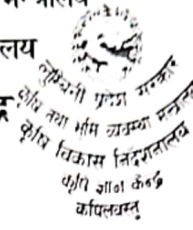 लय
लुम्बिनी प्रदेश सरकार
कृषि तथा भूमि व्यवस्था मन्त्रालय
कृषि विकास निर्देशनालय
कृषि ज्ञान केन्द्र
कपिलवस्तु